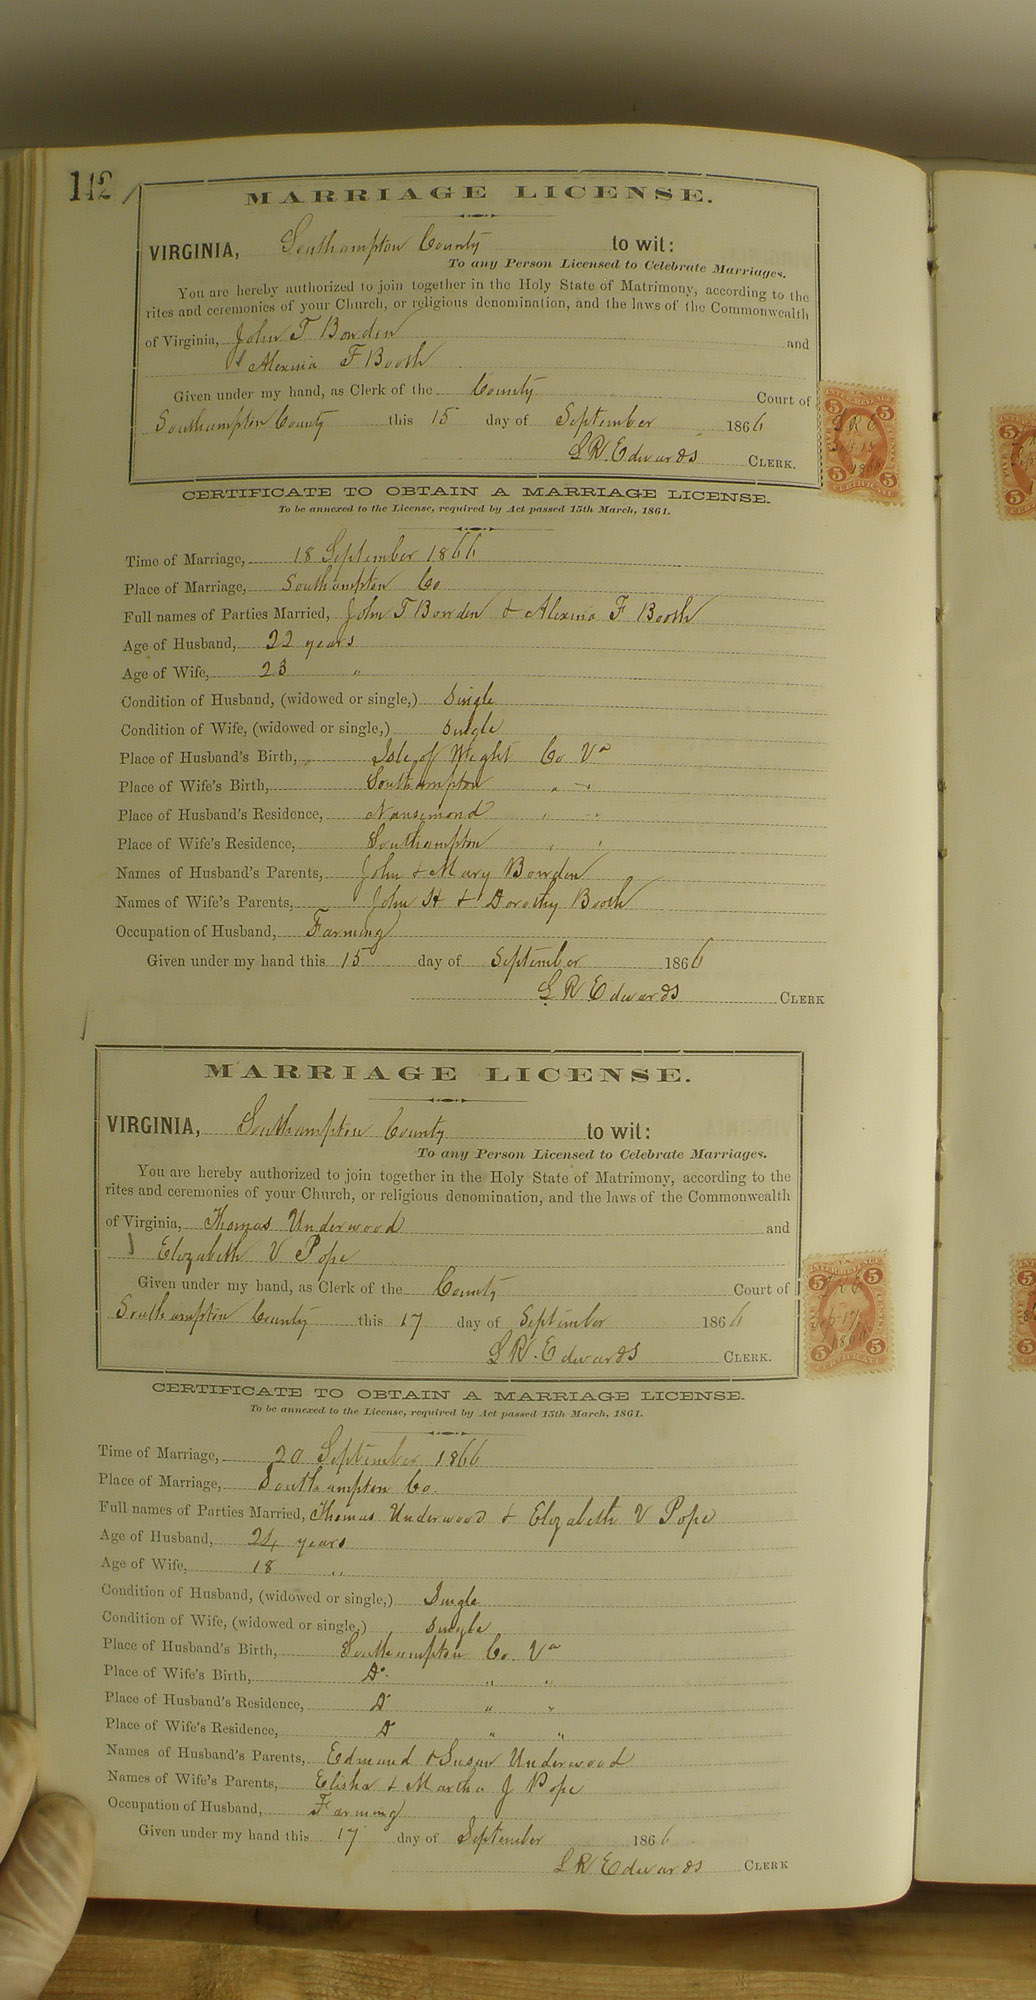 142
MARRIAGE LICENSE.
VIRGINIA, Southampton County to wit:
To any Person Licensed to Celebrate Marriages.
You are hereby authorized to join together in the Holy State of Matrimony, according to the
rites and ceremonies of your Church, or religious denomination, and the laws of the Commonwealth
of Virginia, John T Bowden and
Alexina F Booth
Given under my hand, as Clerk of the County Court of
Southampton County this 15 day of September 1866
L R. Edwards CLERK.
CERTIFICATE TO OBTAIN A MARRIAGE LICENSE.
To be annexed to the License, required by Act passed 15th March, 1861.
Time of Marriage, 18 September 1866
Place of Marriage, Southampton Co
Full names of Parties Married, John T Bowden & Alexina F Booth
Age of Husband, 22 years
Age of Wife, 23 "
Condition of Husband, (widowed or single,) Single
Condition of Wife, (widowed or single,) Single
Place of Husband's Birth, Isle of Wight Co Va
Place of Wife's Birth, Southampton " "
Place of Husband's Residence, Nansemond " "
Place of Wife's Residence, Southampton " "
Names of Husband's Parents, John & Mary Bowden
Names of Wife's Parents, John H & Dorothy Booth
Occupation of Husband, Farming
Given under my hand this 15 day of September 1866
L R Edwards CLERK
MARRIAGE LICENSE.
VIRGINIA, Southampton County to wit:
To any Person Licensed to Celebrate Marriages.
You are hereby authorized to join together in the Holy State of Matrimony, according to the
rites and ceremonies of your Church, or religious denomination, and the laws of the Commonwealth
of Virginia, Thomas Underwood and
Elizabeth V Pope
Given under my hand, as Clerk of the County Court of
Southampton County this 17 day of September 1866
L R. Edwards CLERK.
CERTIFICATE TO OBTAIN A MARRIAGE LICENSE.
To be annexed to the License, required by Act passed 15th March, 1861.
Time of Marriage, 20 September 1866
Place of Marriage, Southampton Co.
Full names of Parties Married, Thomas Underwood & Elizabeth V Pope
Age of Husband, 24 years
Age of Wife, 18 "
Condition of Husband, (widowed or single,) Single
Condition of Wife, (widowed or single,) Single
Place of Husband's Birth, Southampton Co. Va
Place of Wife's Birth, Do. " "
Place of Husband's Residence, Do " "
Place of Wife's Residence, Do " "
Names of Husband's Parents, Edmund & Susan Underwood
Names of Wife's Parents, Elisha & Martha J Pope
Occupation of Husband, Farming
Given under my hand this 17 day of September 1866
L R Edwards CLERK